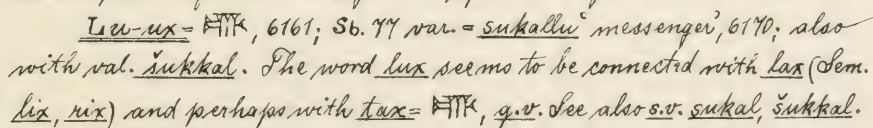 Lu-ux = 𒈛, 6161; Sb. 77 var. = sukallu 'messenger', 6170; also
with val. šukkal. The word lux seems to be connected with lax (Sem.
lix, rix) and perhaps with tax = 𒈛, q.v. See also s.v. sukal, šukkal.